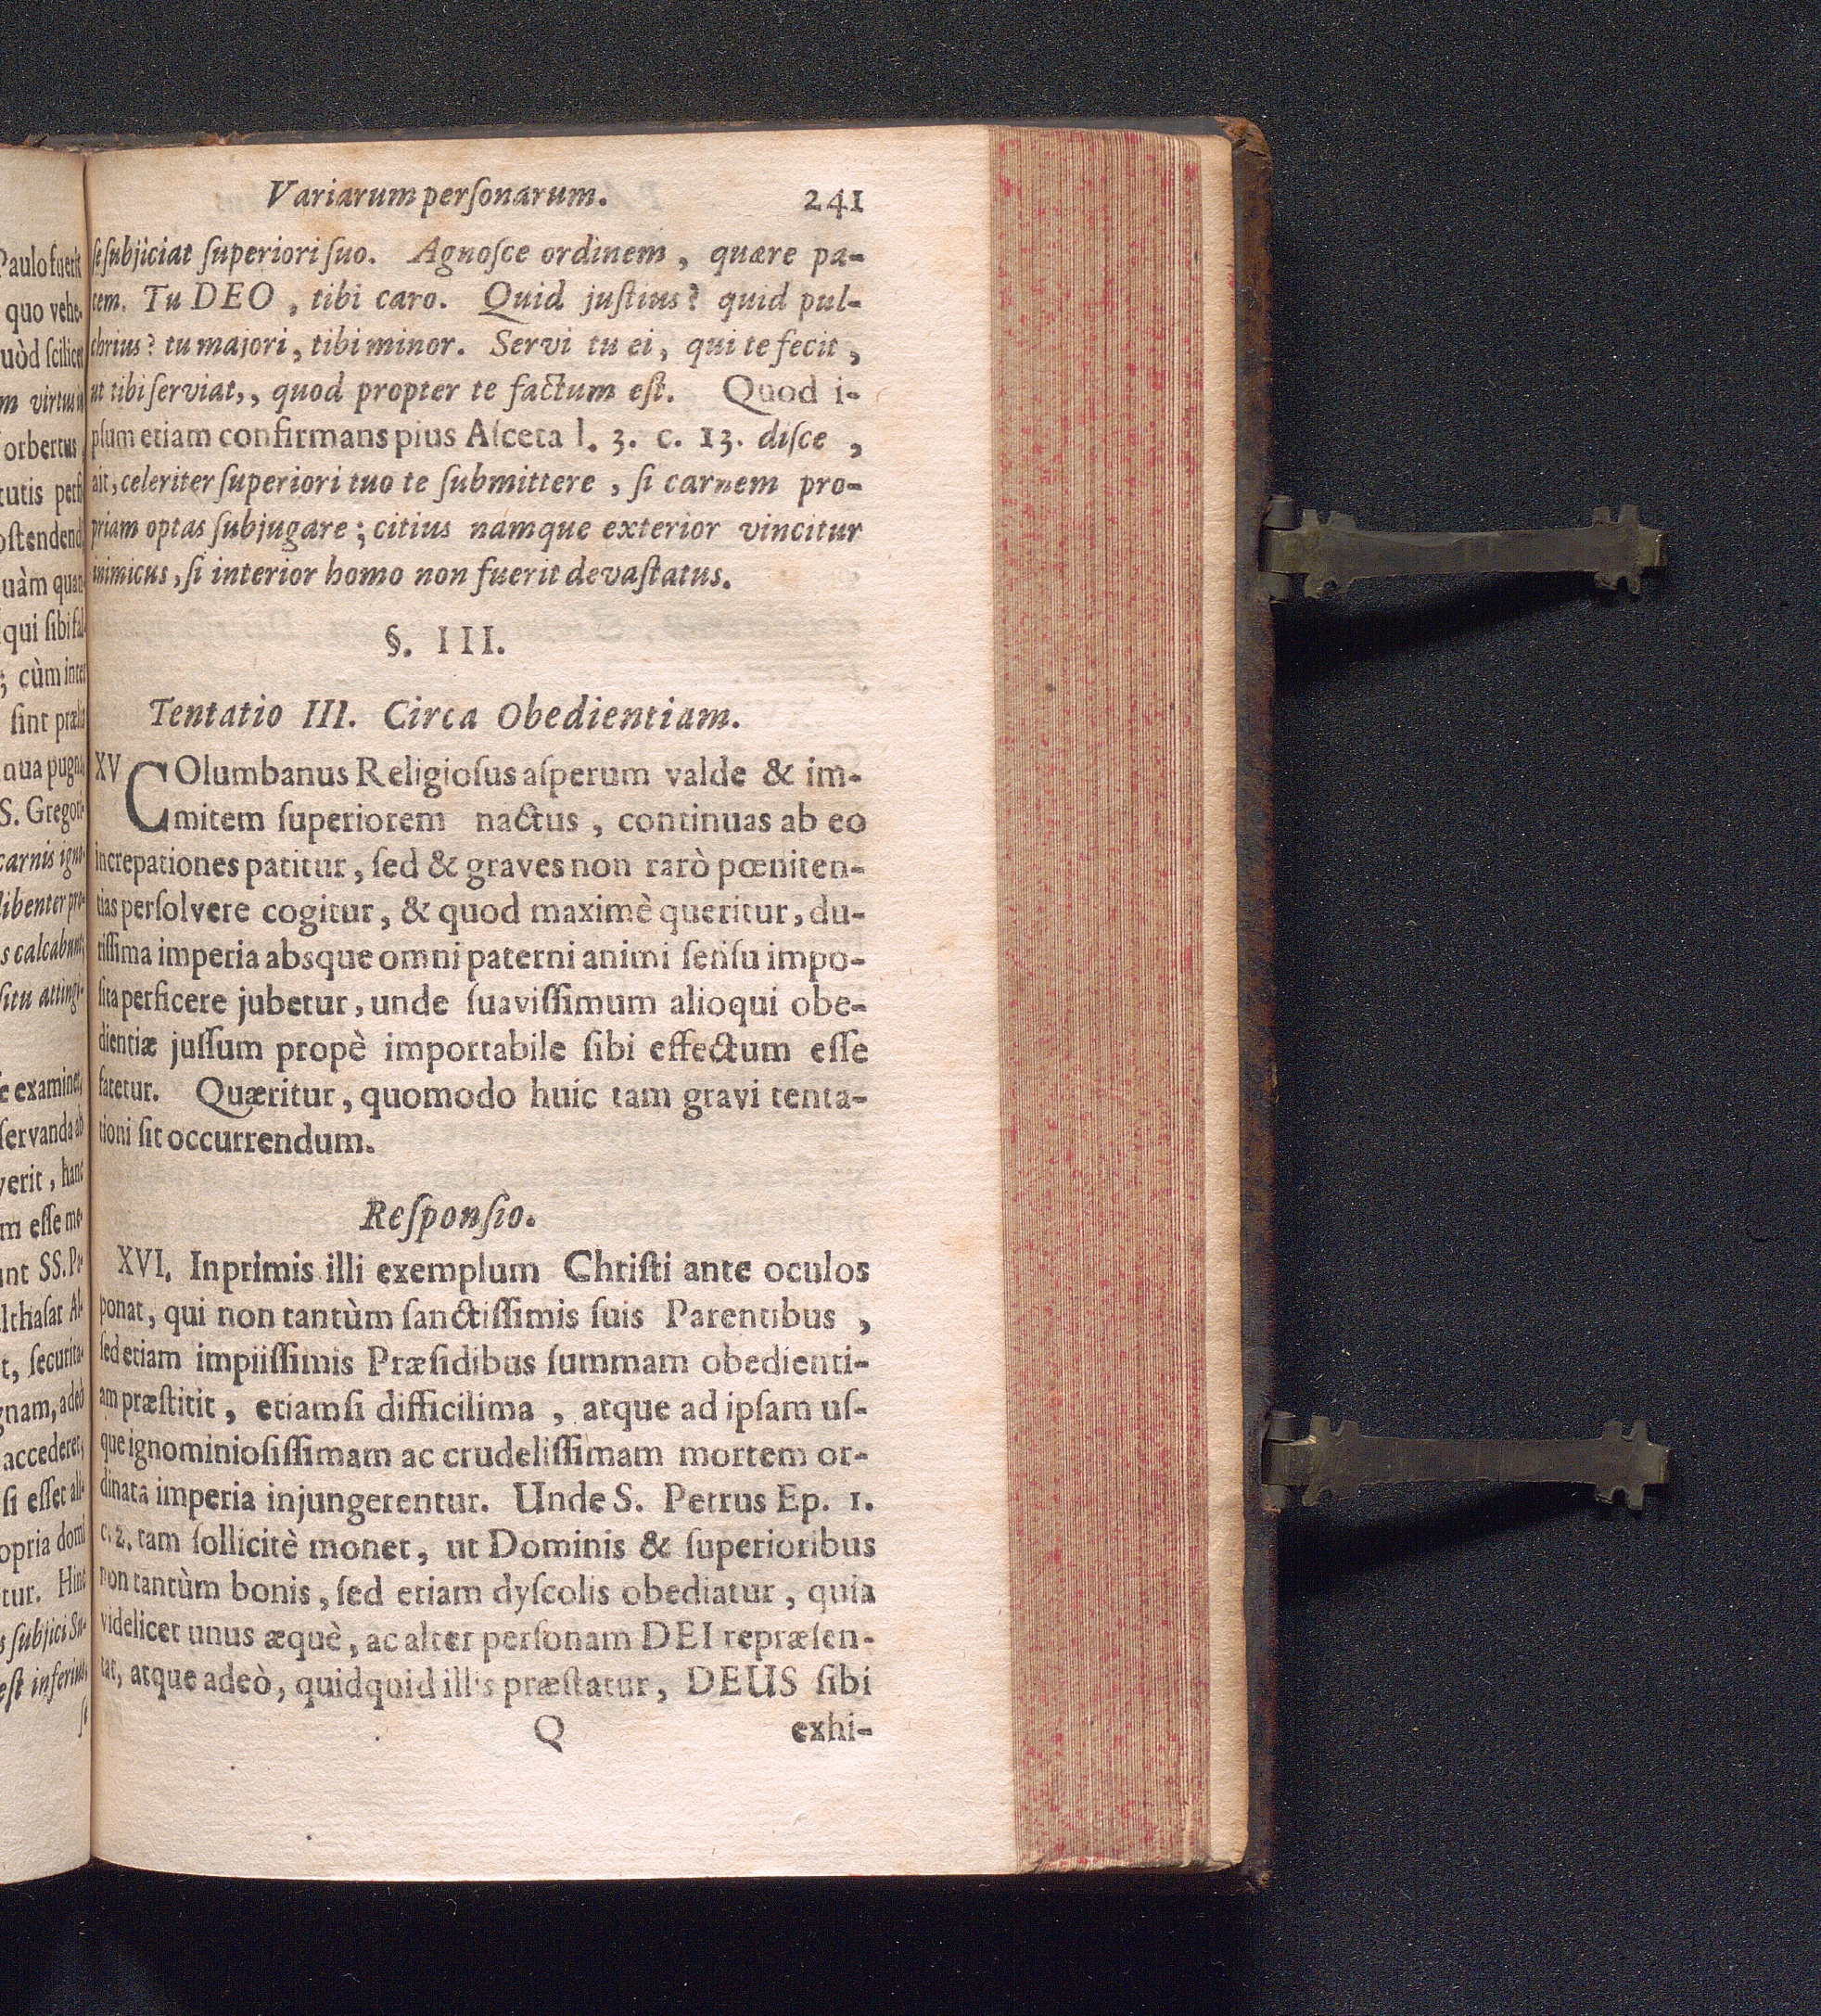 Paulo fuerit
quo vehe-
uòd ſcilicet
m virtus in
orbertus,
tutis perfi
oſtendend
uàm quan-
qui ſibi fal
; cùm inter
ſint prælia
nua pugna,
S. Gregor-
carnis igno-
libenter pro-
s calcabunt,
ſitu attingi-
e examinet,
ſervanda ab
verit, hanc
m eſſe me-
unt SS. Pa-
lthaſar Al-
t, ſecurita-
gnam, adeò
accederet,
ſi eſſet ali-
opria domi
tur. Hinc
s ſubjici Su-
eſt inferius,
ſe
Variarum perſonarum. 241
ſe ſubjiciat ſuperiori ſuo. Agnoſce ordinem, quære pa-
cem. Tu DEO, tibi caro. Quid juſtius? quid pul-
chrius? tu majori, tibi minor. Servi tu ei, qui te fecit,
ut tibi ſerviat,, quod propter te factum eſt. Quod i-
pſum etiam confirmans pius Aſceta l. 3. c. 13. diſce,
ait, celeriter ſuperiori tuo te ſubmittere, ſi carnem pro-
priam optas ſubjugare; citius namque exterior vincitur
inimicus, ſi interior homo non fuerit devaſtatus.
§. III.
Tentatio III. Circa Obedientiam.
XV COlumbanus Religioſus aſperum valde & im-
mitem ſuperiorem nactus, continuas ab eo
increpationes patitur, ſed & graves non rarò pœniten-
tias perſolvere cogitur, & quod maximè queritur, du-
riſſima imperia absque omni paterni animi ſenſu impo-
ſita perficere jubetur, unde ſuaviſſimum alioqui obe-
dientiæ juſſum propè importabile ſibi effectum eſſe
fatetur. Quæritur, quomodo huic tam gravi tenta-
tioni ſit occurrendum.
Reſponſio.
XVI. Inprimis illi exemplum Chriſti ante oculos
ponat, qui non tantùm ſanctiſſimis ſuis Parentibus,
ſed etiam impiiſſimis Præſidibus ſummam obedienti-
am præſtitit, etiamſi difficilima, atque ad ipſam uſ-
que ignominioſiſſimam ac crudeliſſimam mortem or-
dinata imperia injungerentur. Unde S. Petrus Ep. 1.
c. 2. tam ſollicitè monet, ut Dominis & ſuperioribus
non tantùm bonis, ſed etiam dyſcolis obediatur, quia
videlicet unus æquè, ac alter perſonam DEI repræſen-
tat, atque adeò, quidquid illis præſtatur, DEUS ſibi
Q exhi-